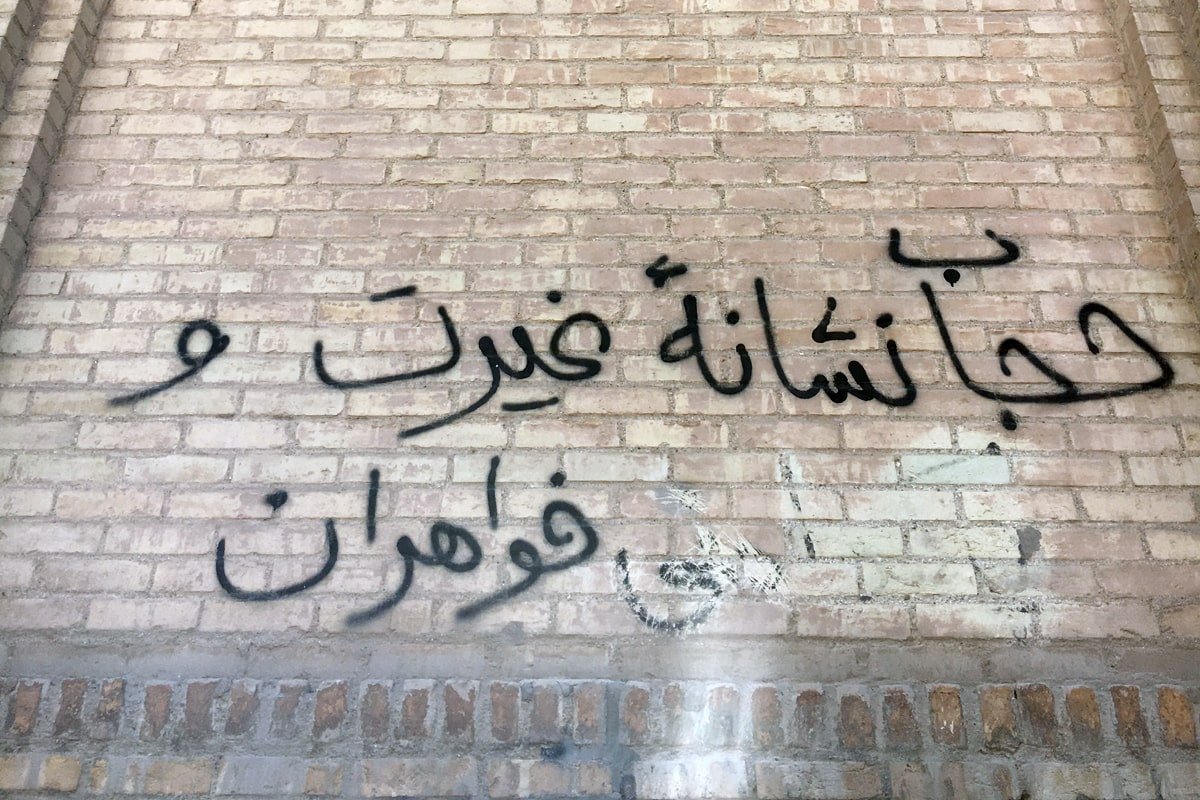 حجاب نشانهٔ غیرت و
خواهران